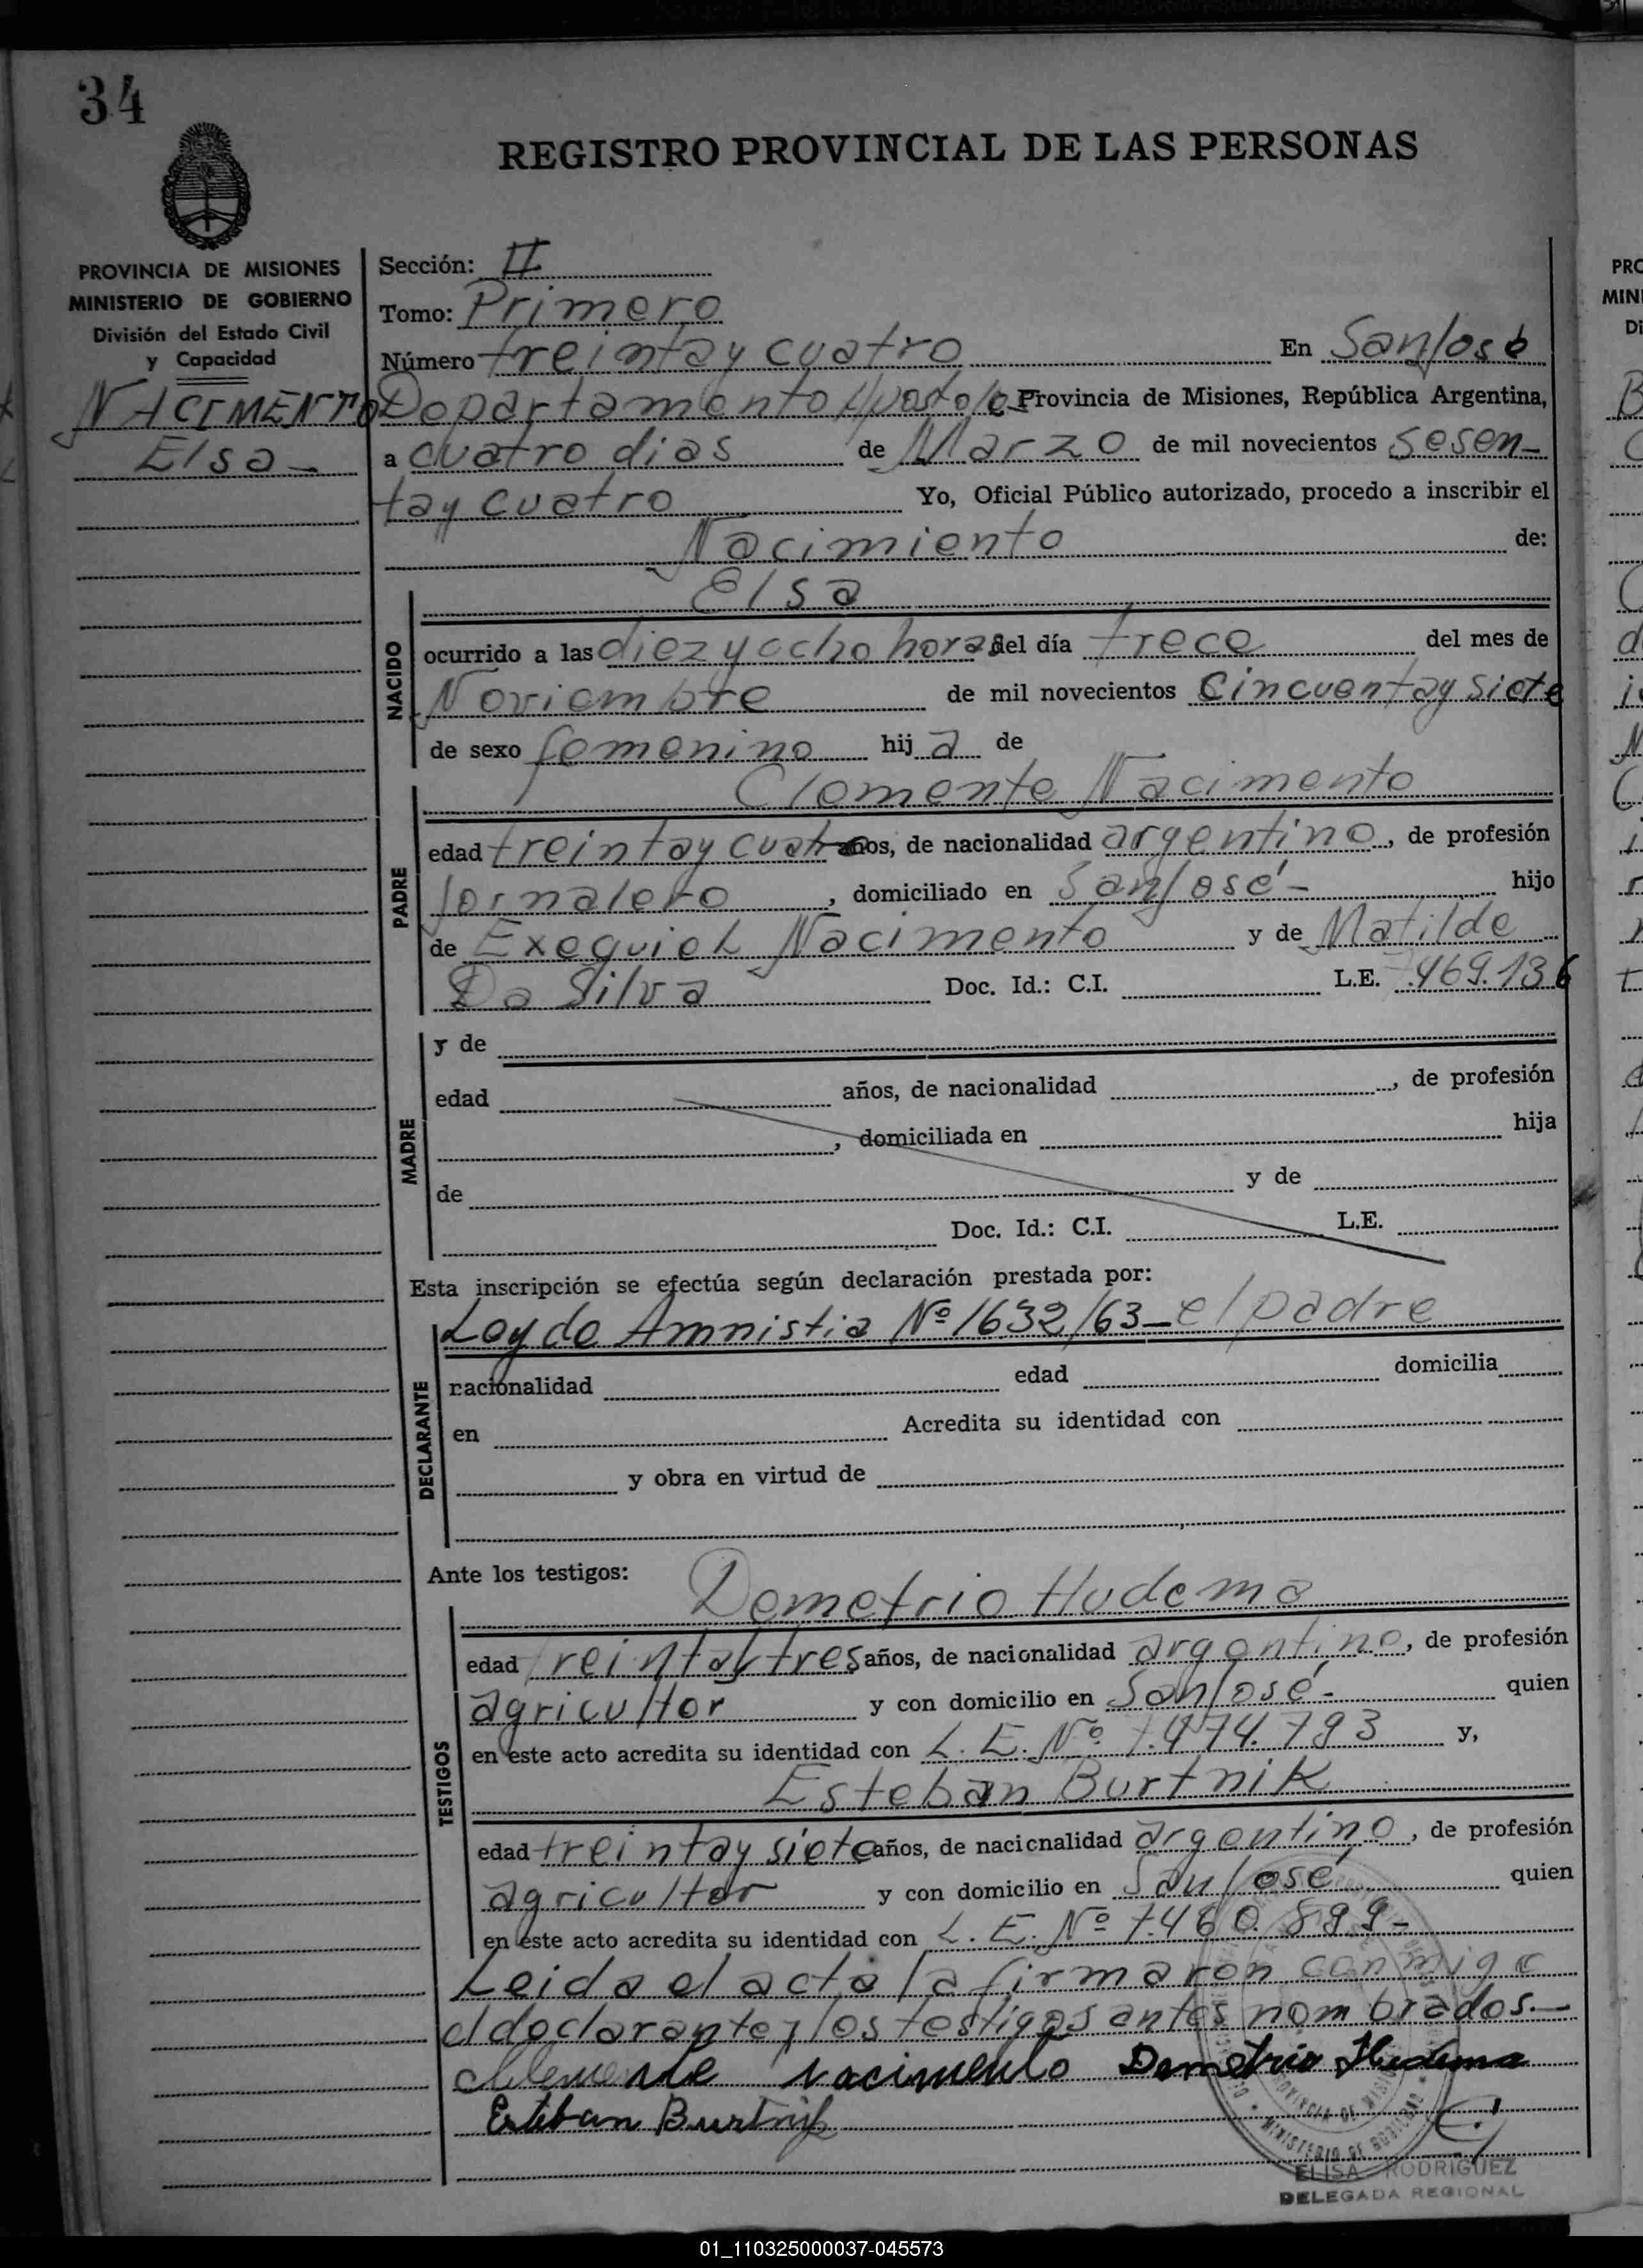 34
REGISTRO PROVINCIAL DE LAS PERSONAS
PROVINCIA DE MISIONES
MINISTERIO DE GOBIERNO
División del Estado Civil
y Capacidad
NACIMENTO
Elsa-
Sección: II
Tomo: Primero
Número treinta y cuatro En San José
Departamento Apóstoles Provincia de Misiones, República Argentina,
a cuatro dias de Marzo de mil novecientos sesen-
ta y cuatro Yo, Oficial Público autorizado, procedo a inscribir el
Nacimiento de:
Elsa
NACIDO
ocurrido a las diez y ocho horas del día trece del mes de
Noviembre de mil novecientos Cincuenta y siete
de sexo femenino hij a de
Clemente Nacimento
PADRE
edad treinta y cuatro años, de nacionalidad argentino, de profesión
Jornalero, domiciliado en San José- hijo
de Exequiel Nacimento y de Matilde
Da Silva Doc. Id.: C.I. L.E. 7.469.136
MADRE
y de
edad años, de nacionalidad , de profesión
, domiciliada en hija
de y de
Doc. Id.: C.I. L.E.
Esta inscripción se efectúa según declaración prestada por:
Ley de Amnistia Nº 1632/63-el padre
DECLARANTE
nacionalidad edad domicilia
en Acredita su identidad con
y obra en virtud de
Ante los testigos:
Demetrio Hudema
TESTIGOS
edad treinta y tres años, de nacionalidad argentino, de profesión
agricultor y con domicilio en San José- quien
en este acto acredita su identidad con L.E. Nº 7.474.793 y,
Esteban Burtnik
edad treinta y siete años, de nacicnalidad argentino, de profesión
agricultor y con domicilio en San José, quien
en este acto acredita su identidad con L.E. Nº 7.460.899-
Leida el acta la firmaron conmigo
el declarante y los testigos antes nombrados.-
Clemente Nacimento Demetrio Hudema
Esteban Burtnik
ELISA RODRIGUEZ
DELEGADA REGIONAL
01_110325000037-045573